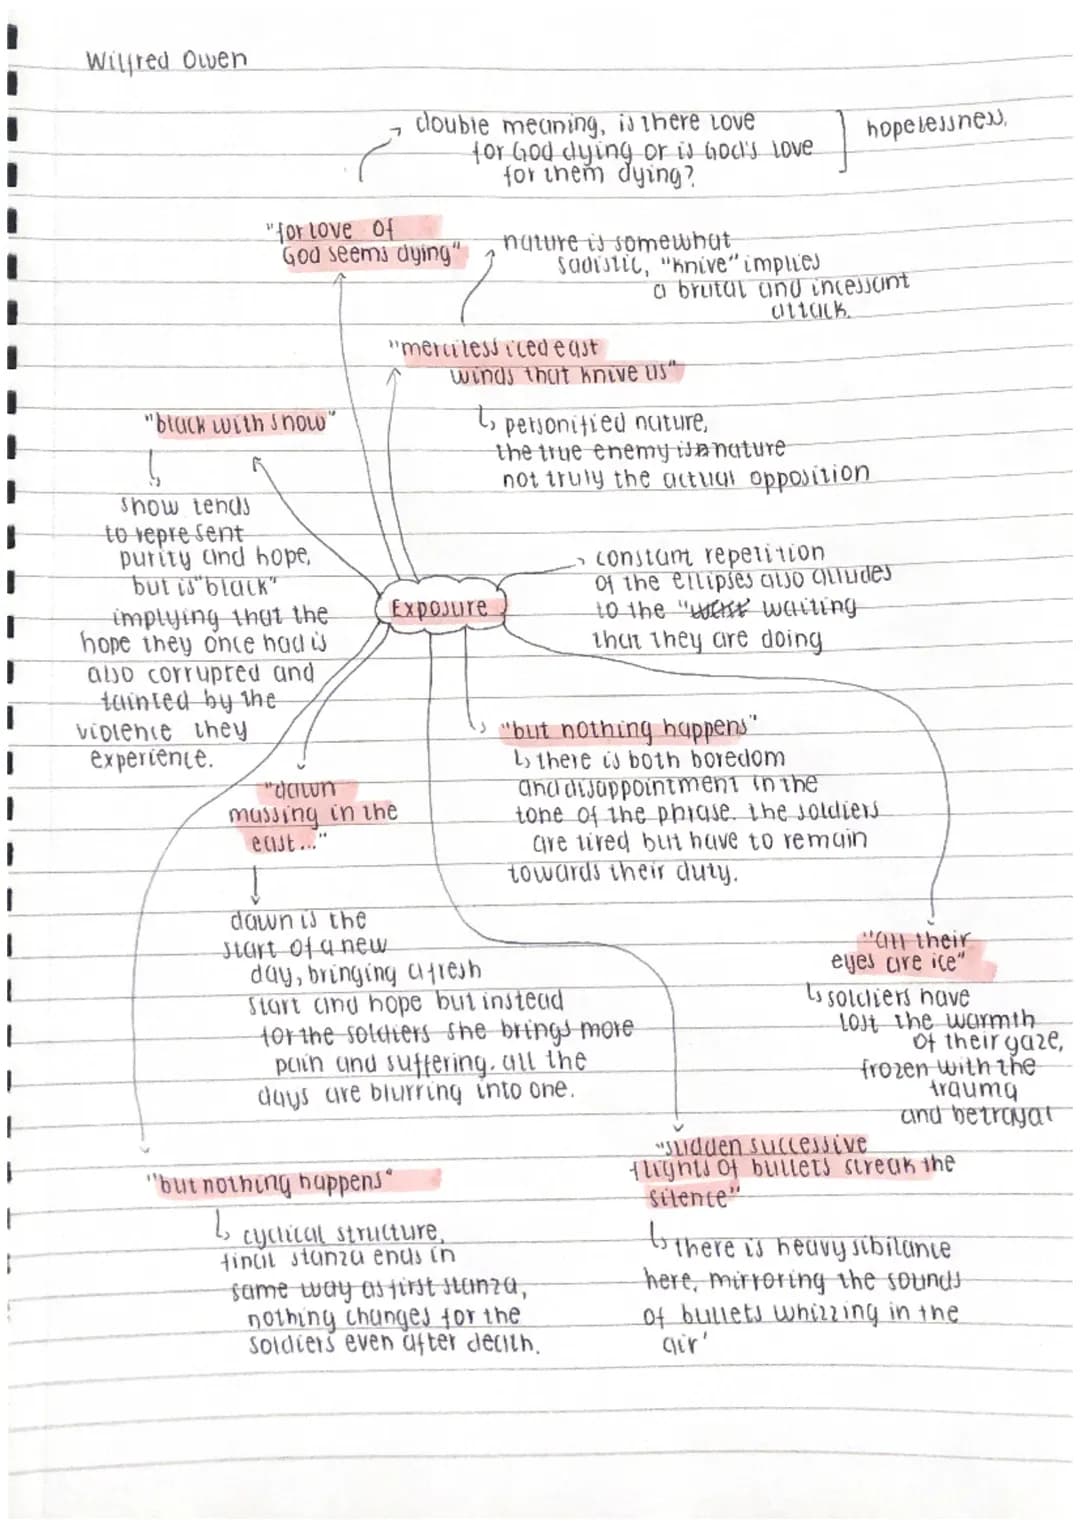 Wilfred Owen
double meaning, is there love
for God dying or is God's love
for them dying?
hopelessness.
"for love of
God seems dying"
nature is somewhat
sadistic, "knive" implies
a brutal and incessant
attack.
"merciless iced east
winds that knive us"
personified nature,
the true enemy is nature
not truly the actual opposition
"black with snow"
snow tends
to represent
purity and hope,
but is "black"
implying that the
hope they once had is
also corrupted and
tainted by the
violence they
experience.
Exposure
constant repetition
of the ellipses also alludes
to the " waiting
that they are doing
"but nothing happens"
there is both boredom
and disappointment in the
tone of the phrase. the soldiers
are tired but have to remain
towards their duty.
"dawn
massing in the
east..."
dawn is the
start of a new
day, bringing a fresh
start and hope but instead
for the soldiers she brings more
pain and suffering. all the
days are blurring into one.
"all their
eyes are ice"
soldiers have
lost the warmth
of their gaze,
frozen with the
trauma
and betrayal
"but nothing happens"
cyclical structure,
final stanza ends in
same way as first stanza,
nothing changes for the
soldiers even after death.
"sudden successive
flights of bullets streak the
silence"
there is heavy sibilance
here, mirroring the sounds
of bullets whizzing in the
air'